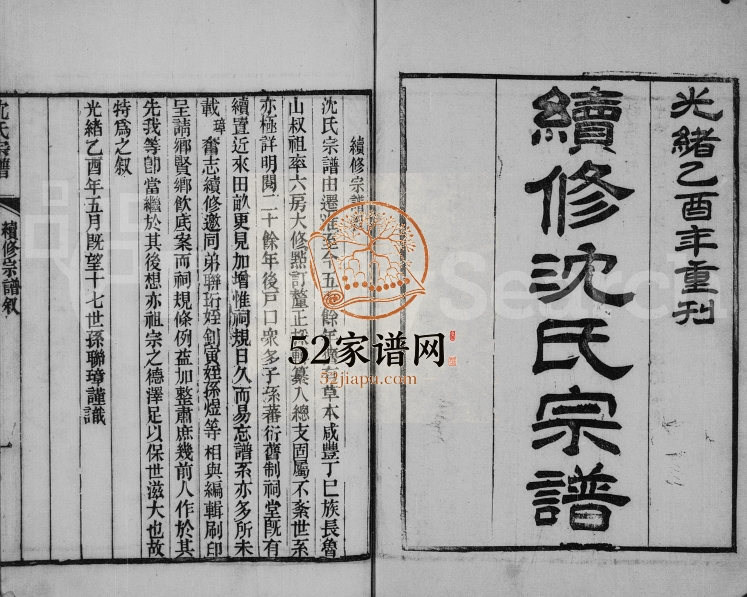 光緒乙酉年重刊
續修沈氏宗譜
續修宗譜
沈氏宗譜由遷 至今五 餘年 草本咸豐丁巳族長魯
山叔祖率六房大修照訂釐正 纂入總支固屬不紊世系
亦極詳明閱二十餘年後戶口衆多子孫蕃衍舊制祠堂既有
續置近來田畝更見加增惟祠規日久而易忘譜系亦多所未
載璋奮志續修邀同弟聯珩姪釗寅姪孫煜等相與編輯刷印
呈請鄉賢鄉飲底案而祠規條例益加整肅庶幾前人作於其
先我等卽當繼於其後想亦祖宗之德澤足以保世滋大也故
特爲之叙
光緒乙酉年五月既望十七世孫聯璋謹識
沈氏宗譜
續修宗譜叙
一
52家谱网
52jiapu.com
Search